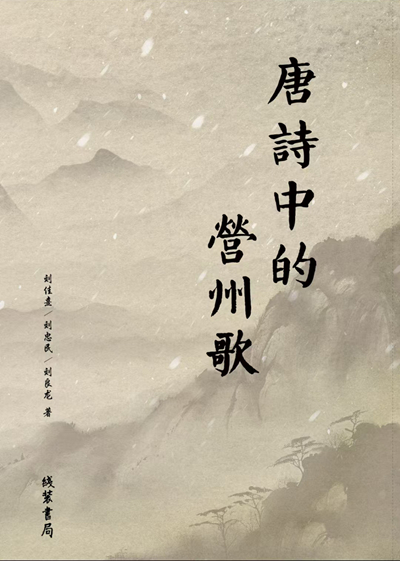 唐詩中的
營州歌
刘佳鑫/刘忠民/刘良龙 著
线装書局